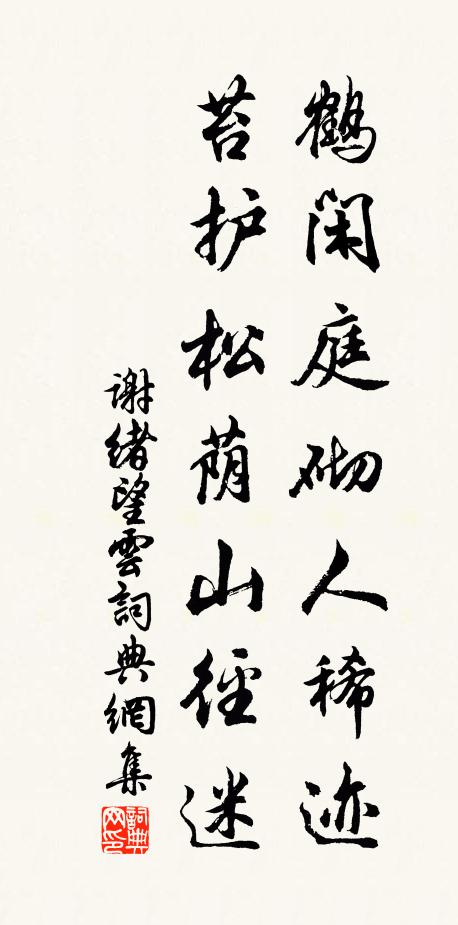 鹤闲庭砌人稀迹
苔护松荫山径迷
谢绪望雲詞典網集
詞典
网印